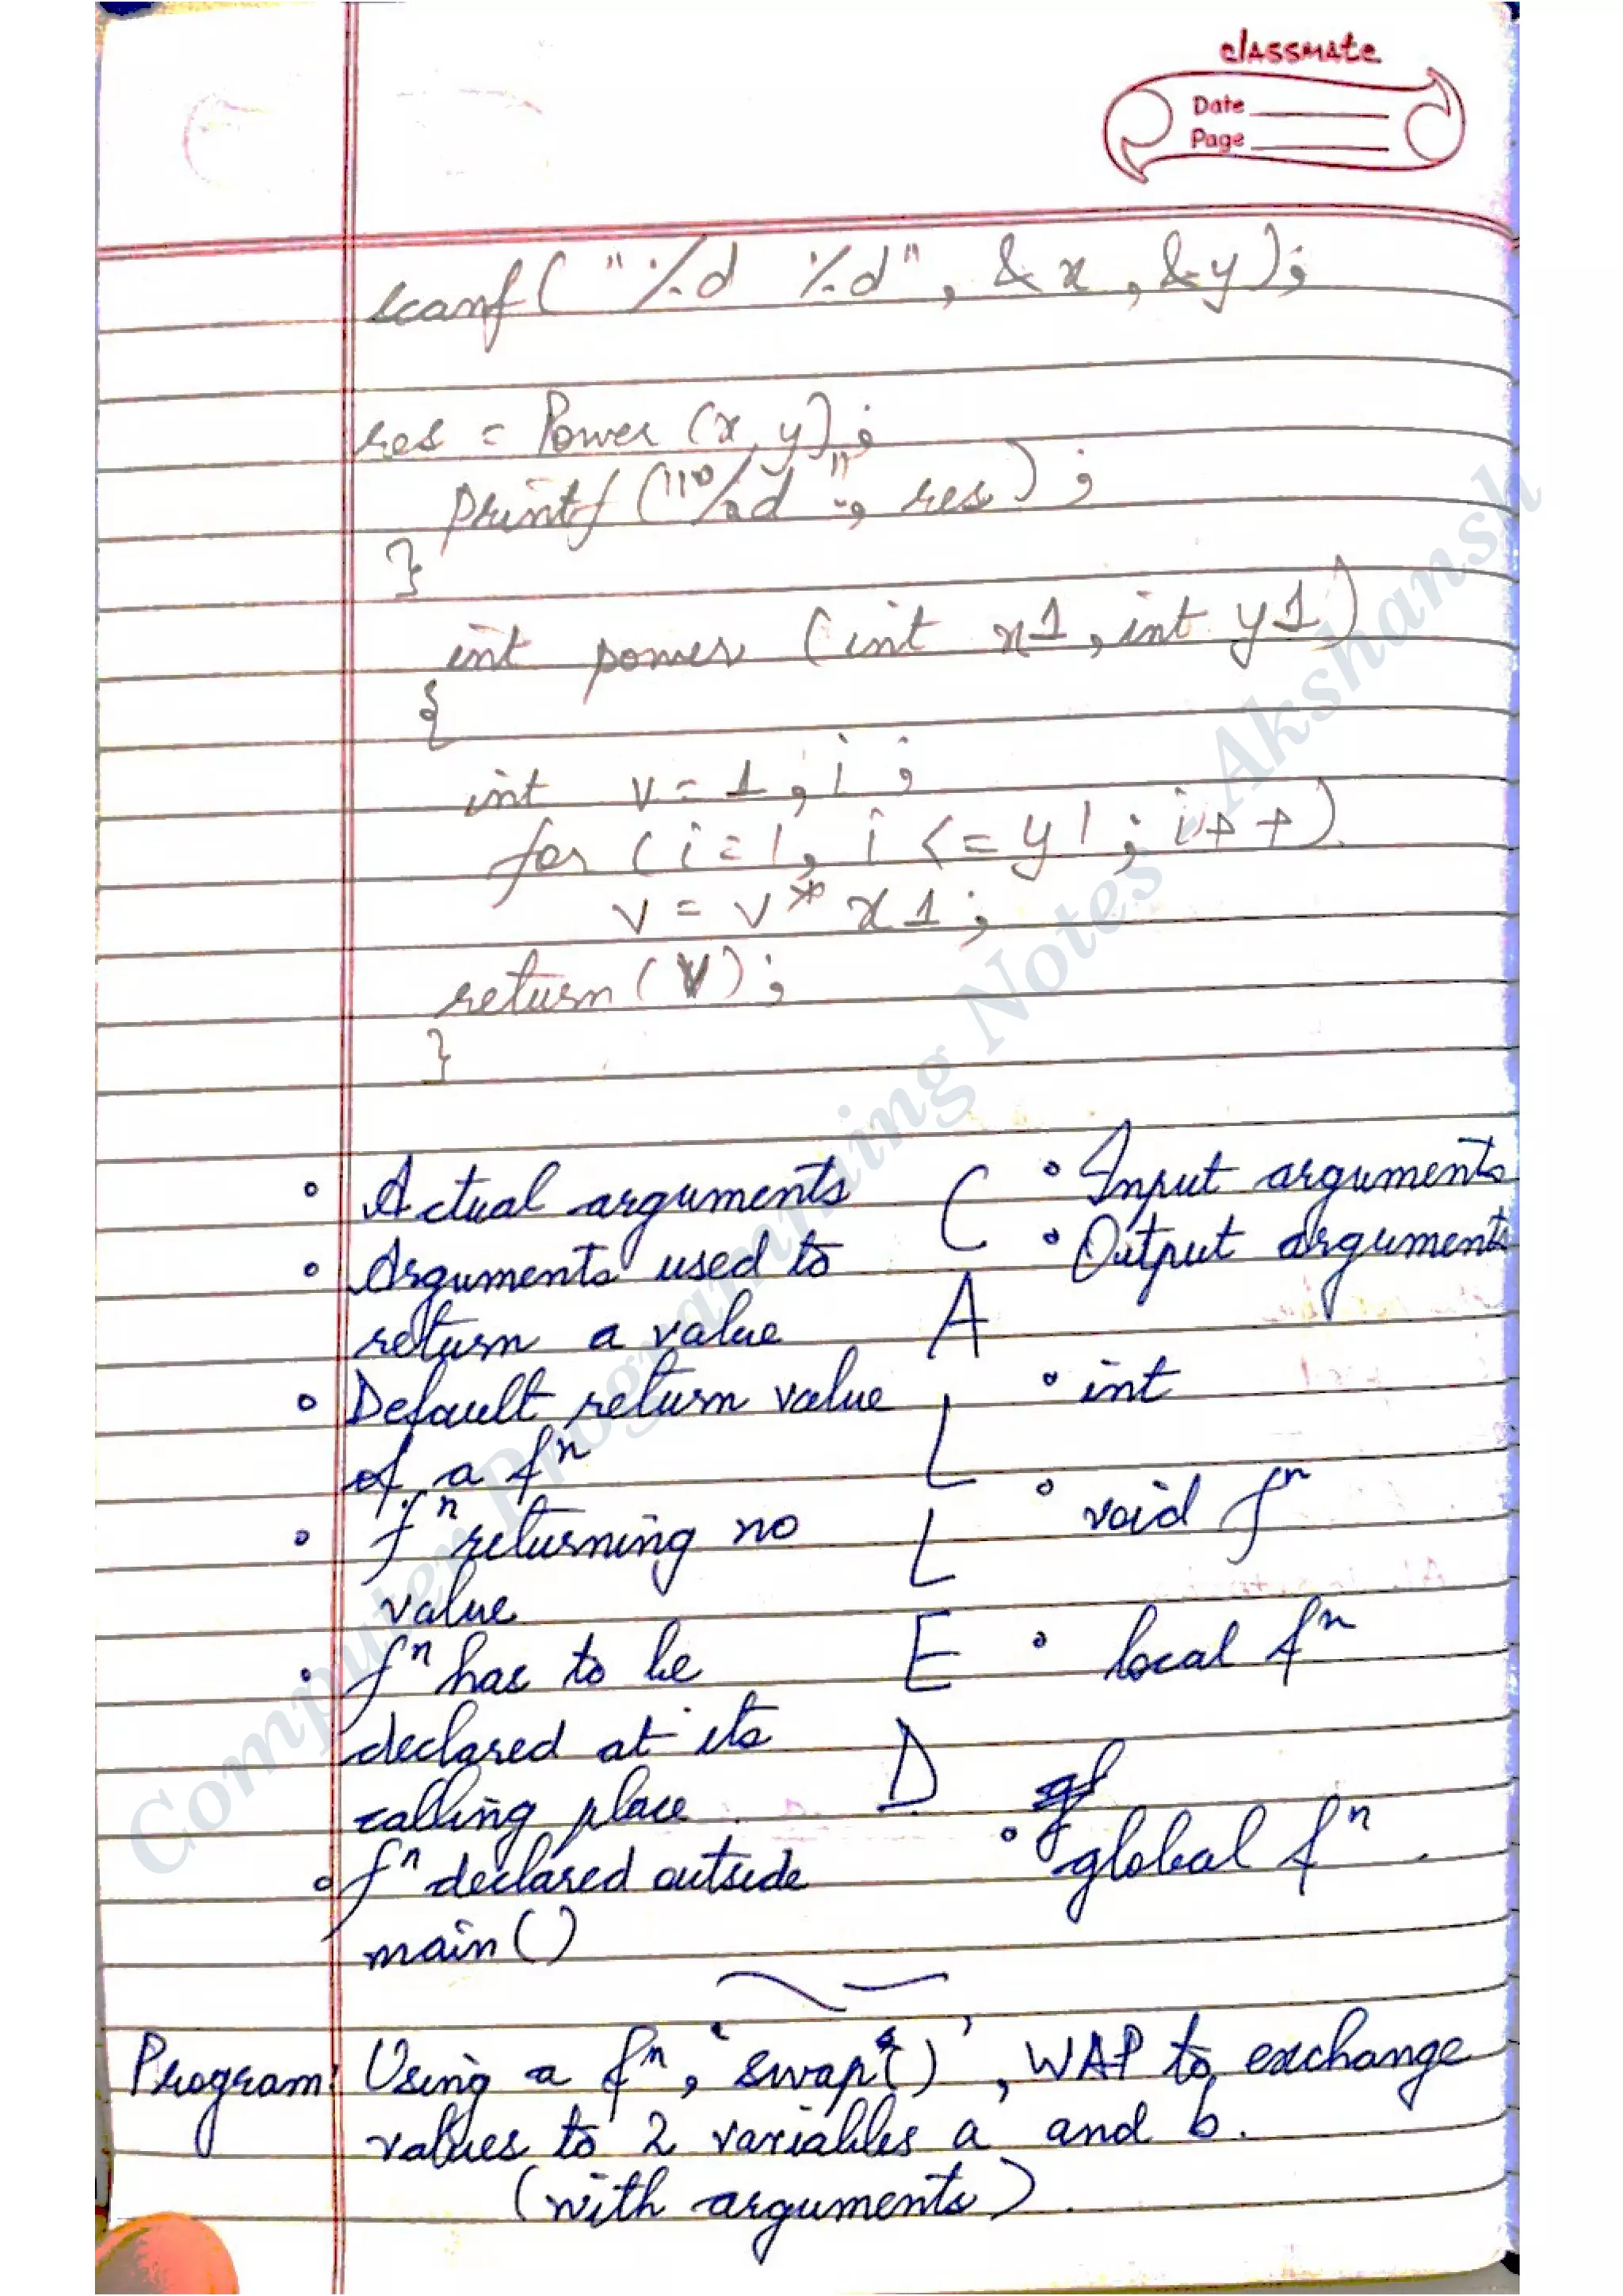 classmate
Date
Page
scanf ( "%d %d" , &x , &y ) ;
res = Power (x, y) ;
printf ("%d", res) ;
}
int power (int x1 , int y1)
{
int v = 1 , i ;
for ( i = 1 , i <= y1 ; i++)
v = v * x1 ;
return (v) ;
}
• Actual arguments C • Input arguments
• Arguments used to • Output arguments
return a value A
• Default return value L • int
of a fⁿ
• fⁿ returning no L • void fⁿ
value
• fⁿ has to be E • local fⁿ
declared at its
calling place D
• fⁿ declared outside • global fⁿ .
main ()
Program: Using a fⁿ, 'swap()' , WAP to exchange
values to 2 variables a and b.
(with arguments) .
Computer Programming Notes - Akshansh